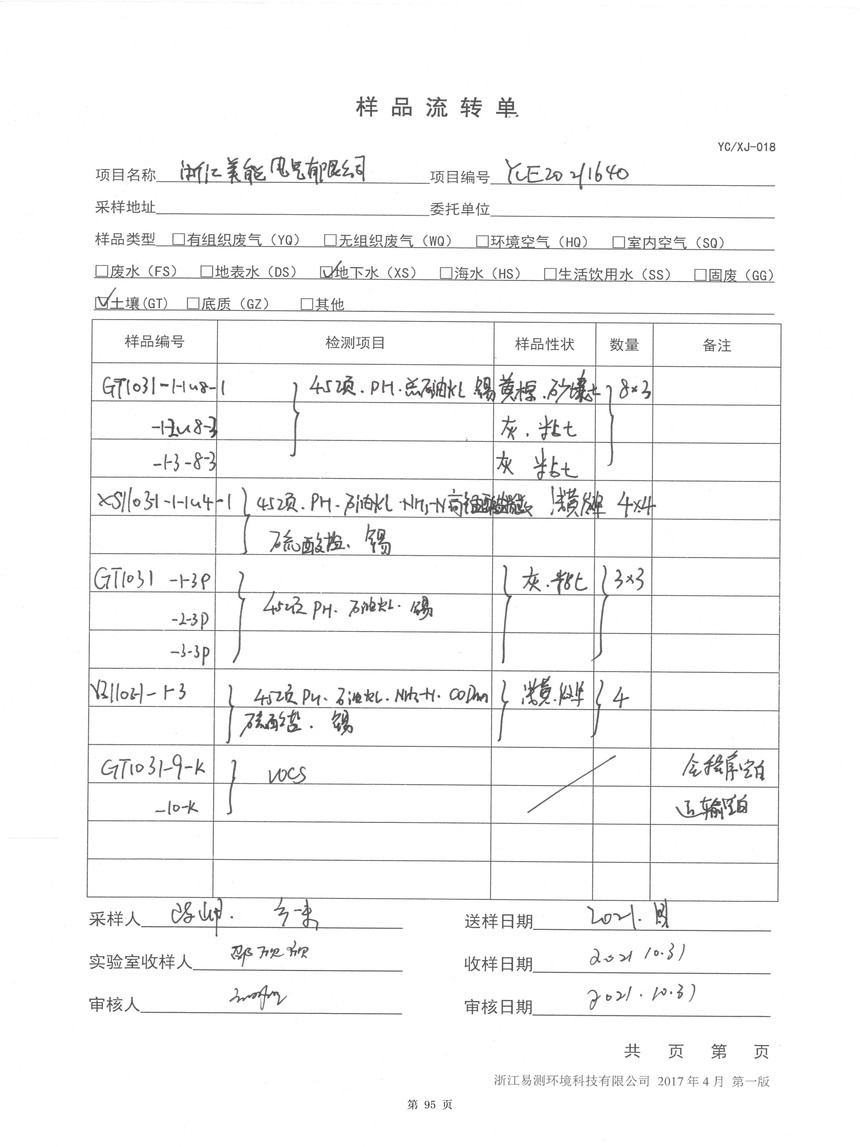 样品流转单
YC/XJ-018
项目名称 浙江美能电气有限公司 项目编号 YCE20211640
采样地址 委托单位
样品类型 □有组织废气（YQ） □无组织废气（WQ） □环境空气（HQ） □室内空气（SQ）
□废水（FS） □地表水（DS） ☑地下水（XS） □海水（HS） □生活饮用水（SS） □固废（GG）
☑土壤(GT) □底质（GZ） □其他
样品编号 检测项目 样品性状 数量 备注
GT1031-1-1~8-1 45项.PH.总石油烃 锡 黄棕.砂壤土 8×3
灰.粘土
-1-3-8-3 灰 粘土
XS11031-1-1~4-1 45项.PH.石油烃.NH3-N 浅黄 4×4
硫酸盐、锡
GT1031 -1-3P 灰.粘土 3×3
-2-3P 45项 PH.石油烃.锡
-3-3P
45项 PH.石油烃.NH3-N.CODMn 浅黄 4
硫酸盐.锡
GT1031-9-K VOCS 全程序空白
-10-K 运输空白
采样人 送样日期 2021.
实验室收样人 收样日期 2021 10.31
审核人 审核日期 2021.10.31
共 页 第 页
浙江易测环境科技有限公司 2017年4月 第一版
第 95 页